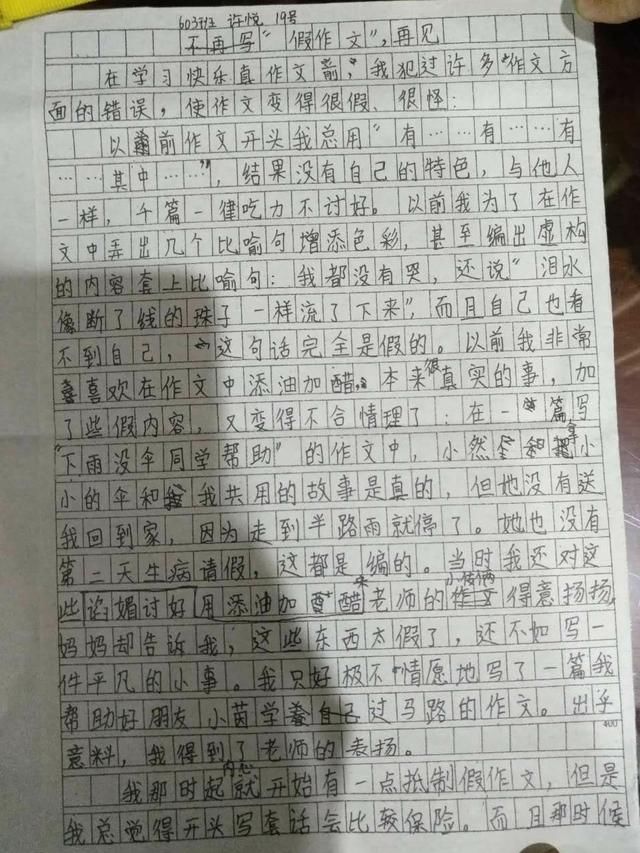 603班 许悦 19号
不再写“假作文”,再见
在学习快乐真作文前,我犯过许多作文方
面的错误,使作文变得很假、很怪:
以前作文开头我总用“有……有……有
……其中……”,结果没有自己的特色,与他人
一样,千篇一律吃力不讨好。以前我为了在作
文中弄出几个比喻句增添色彩,甚至编出虚构
的内容套上比喻句:我都没有哭,还说“泪水
像断了线的珠子一样流了下来”,而且自己也看
不到自己,这句话完全是假的。以前我非常
喜欢在作文中添油加醋,本来很真实的事,加
了些假内容,又变得不合情理了:在一篇写
“下雨没伞同学帮助”的作文中,小然拿小
小的伞和我共用的故事是真的,但她没有送
我回到家,因为走到半路雨就停了。她也没有
第二天生病请假,这都是编的。当时我还对这
些用添油加醋来谄媚讨好老师的小伎俩得意扬扬
妈妈却告诉我,这些东西太假了,还不如写一
件平凡的小事。我只好极不情愿地写了一篇我
帮助好朋友小茵学会自己过马路的作文。出乎
意料,我得到了老师的表扬。
400
我那时起内心就开始有一点抵制假作文,但是
我总觉得开头写套话会比较保险。而且那时候